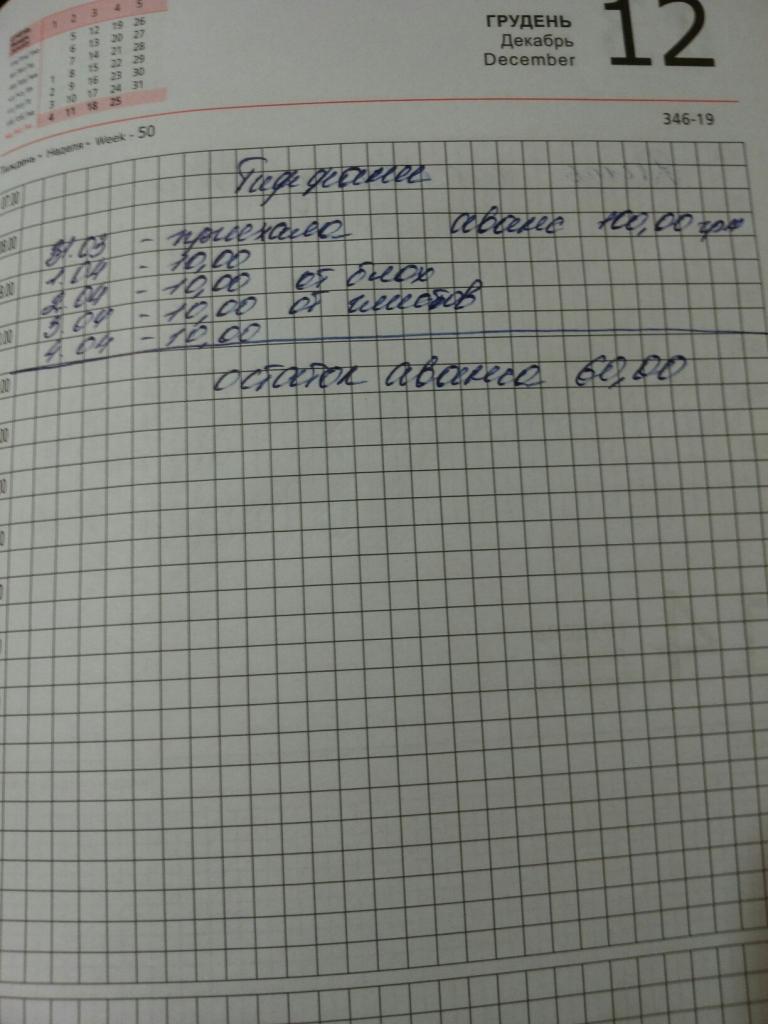 1 2 3 4 5
5 12 19 26
6 13 20 27
7 14 21 28
1 8 15 22 29
2 9 16 23 30
3 10 17 24 31
4 11 18 25
ГРУДЕНЬ
Декабрь
December
12
346-19
Тиждень • Неделя • Week - 50
07:00
Тиффани
08:00
31.03 - приехала аванс 100,00 грн
1.04 - 10,00
2.04 - 10,00 от блох
3.04 - 10,00 от глистов
4.04 - 10,00
остаток аванса 60,00